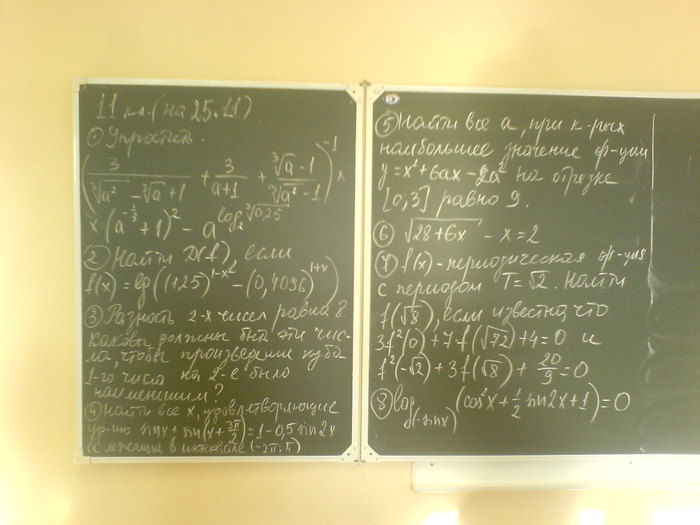 11 кл. (на 25.11)
① Упростить.
(3/(∛a² - ∛a + 1) + 3/(a+1) + (∛a - 1)/(∛a² - 1))⁻¹ ×
× (a^(-1/3) + 1)² - a^(log₂ ∛0,25)
② Найти D(f), если
f(x) = lg((1,25)^(1-x²) - (0,4096)^(1+x))
③ Разность 2-х чисел равна 8
Каковы должны быть эти чис-
ла, чтобы произведение куба
1-го числа на 2-е было
наименьшим?
④ Найти все x, удовлетворяющие
ур-ию sinx + sin(x + 3π/2) = 1 - 0,5 sin2x
и лежащие в интервале (-2π; π)
⑤ Найти все a, при к-рых
наибольшее значение ф-ции
y = x² + 6ax - 2a² на отрезке
[0,3] равно 9.
⑥ √(28+6x) - x = 2
⑦ f(x) - периодическая ф-ция
с периодом T = √2. Найти
f(√8), если известно, что
3f²(0) + 7f(√72) + 4 = 0 и
f²(-√2) + 3f(√8) + 20/9 = 0
⑧ log_(-sinx) (cos²x + ½ sin2x + 1) = 0